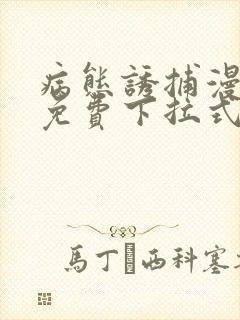 病態誘捕漫
免費下拉式
馬丁西科塞